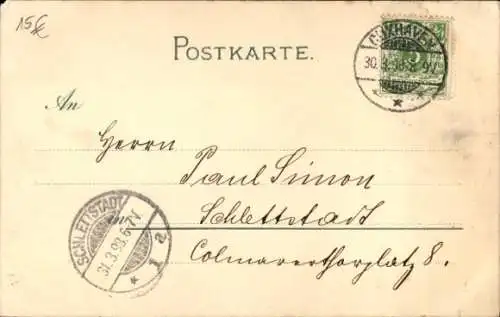 15 €
POSTKARTE.
CUXHAVEN
30.3.98.8-9V.
An
Herrn
Paul Simon
in
Schlettstadt
Colmarerthorplatz 8.
SCHLETTSTADT
31.3.98.6-7V.
* 1 a